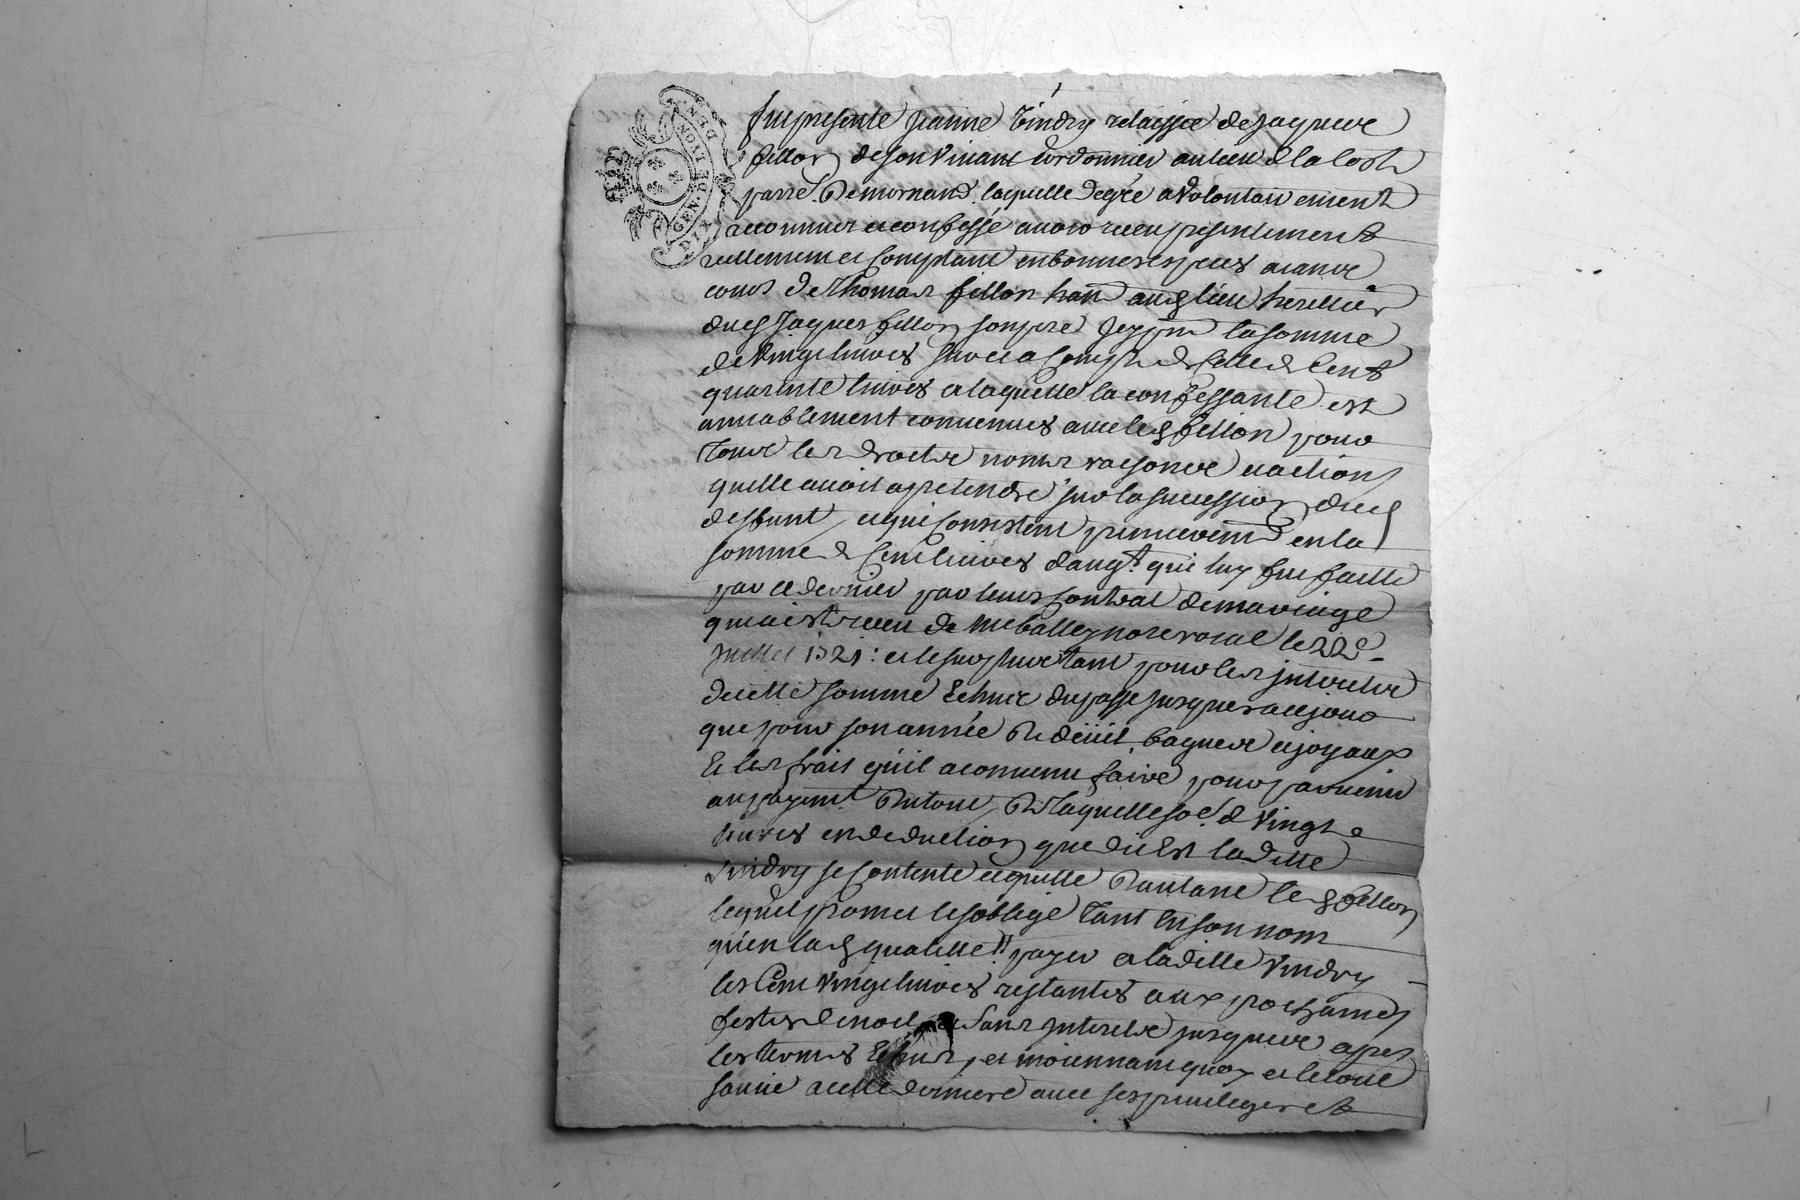 GEN. DE LYON
DEN
DIX
fut presente Jeanne Vindry relaissée de Jacques
fillon de son vivant Cordonnier au lieu de la Coste
parr. De mornand, laquelle de gré a volontairement
reconnue et confessé avoir receu presentement
reellement et Comptant en bonnes especes aiant
cours de Thomas fillon hant aud lieu heretier
dud Jaques fillon son pere Icy pnt la somme
de vingt livres sur et a Compte de Celle de Cent
quarante livres a laquelle la confessante est
amiablement convenues avec led fillon pour
Tous les droits noms raisons et actions
quelle avoit a pretendre sur la succession dud
deffunt, et qui Consistent premierement en la
somme de Cent livres daugt. qui luy fut faitte
par ce dernier par leurs Contrat de mariage
qui a esté receu de Me balley nore roial le 22e
Juillet 1721: et le surplus tant pour les interets
de cette somme Echus du passé jusques a ce jour
que pour son année De düeil, bagues et joyaux
Et les frais quil a convenu faire pour parvenir
au payemt. Du tout, De laquelle soe. de vingt
livres en deduction que dit Est laditte
Vindry se Contente et quitte Dautant led fillon
lequel promet et soblige Tant En son nom
quen lad qualitté payer a laditte Vindry
les Cent vingt livres restantes aux prochaines
festes de noel, et sans interets jusques apres
les termes Echus, et moiennant quoy et le tout
payé a cette derniere avec ses privileges et